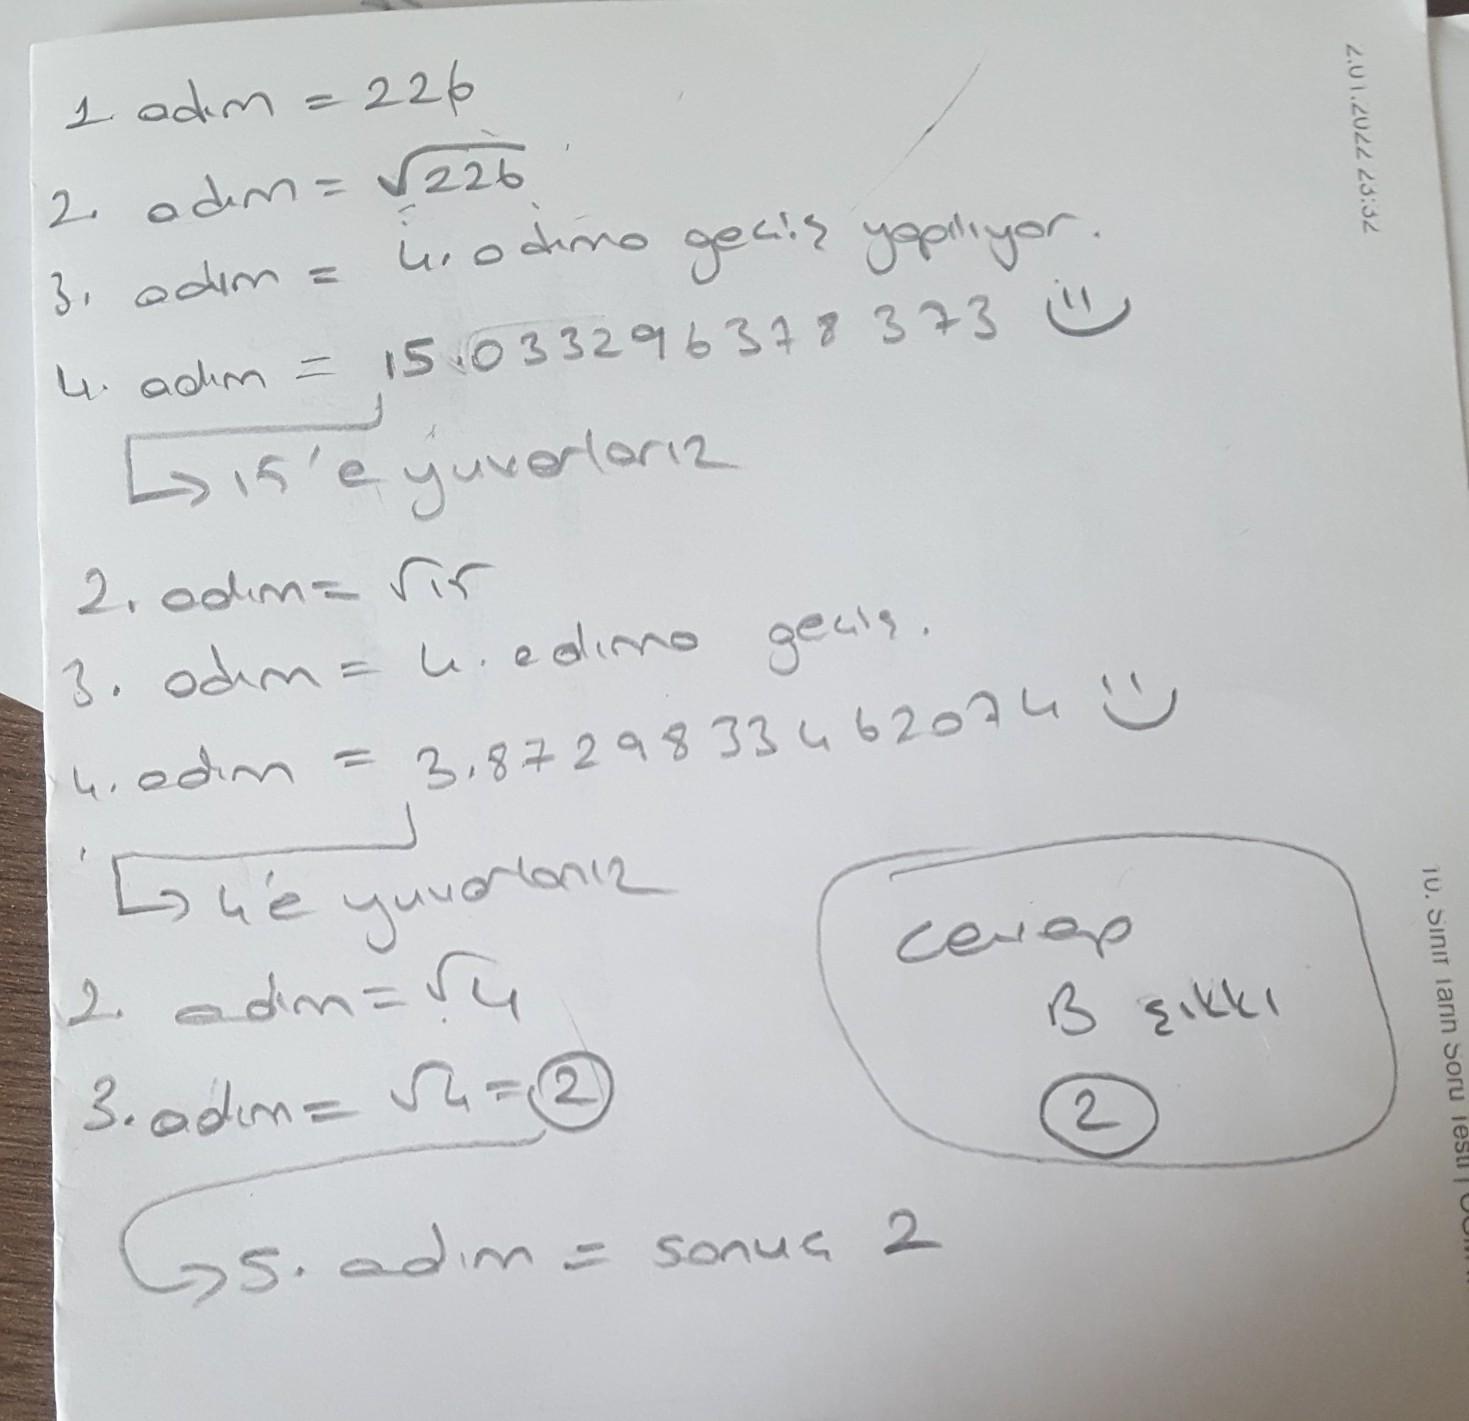 1. adım = 226
2. adım = √226
3. adım = 4. adıma geçiş yapılıyor.
4. adım = 15.033296378373
↳ 15'e yuvarlarız
2. adım = √15
3. adım = 4. adıma geçiş.
4. adım = 3.8729833462074
↳ 4'e yuvarlarız
2. adım = √4
3. adım = √4 = 2
↳ 5. adım = sonuç 2
cevap
B şıkkı
2
2.01.2022 23:32
10. Sınıf Tarih Soru Testi |